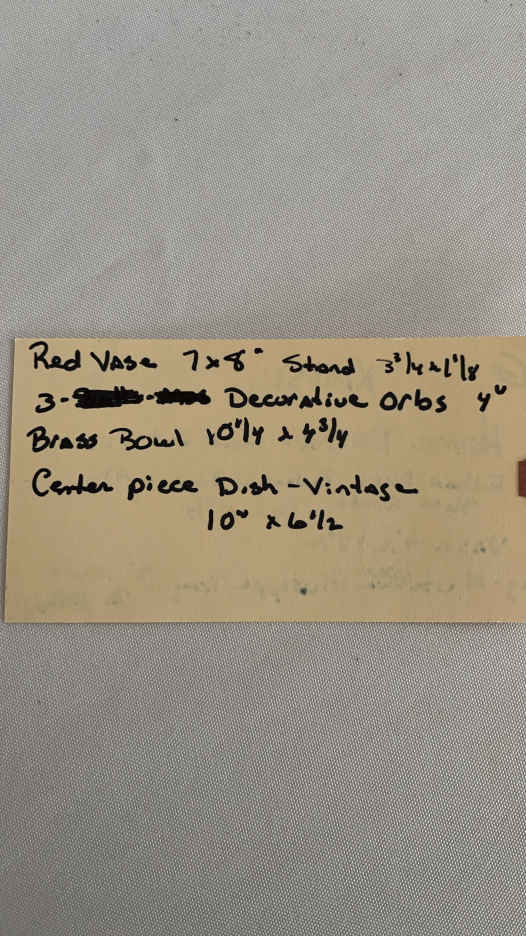 Red Vase 7x8" Stand 3 3/4 x 1 1/8
3- Decorative Orbs 4"
Brass Bowl 10 1/4 x 4 3/4
Center piece Dish - Vintage
10" x 6 1/2